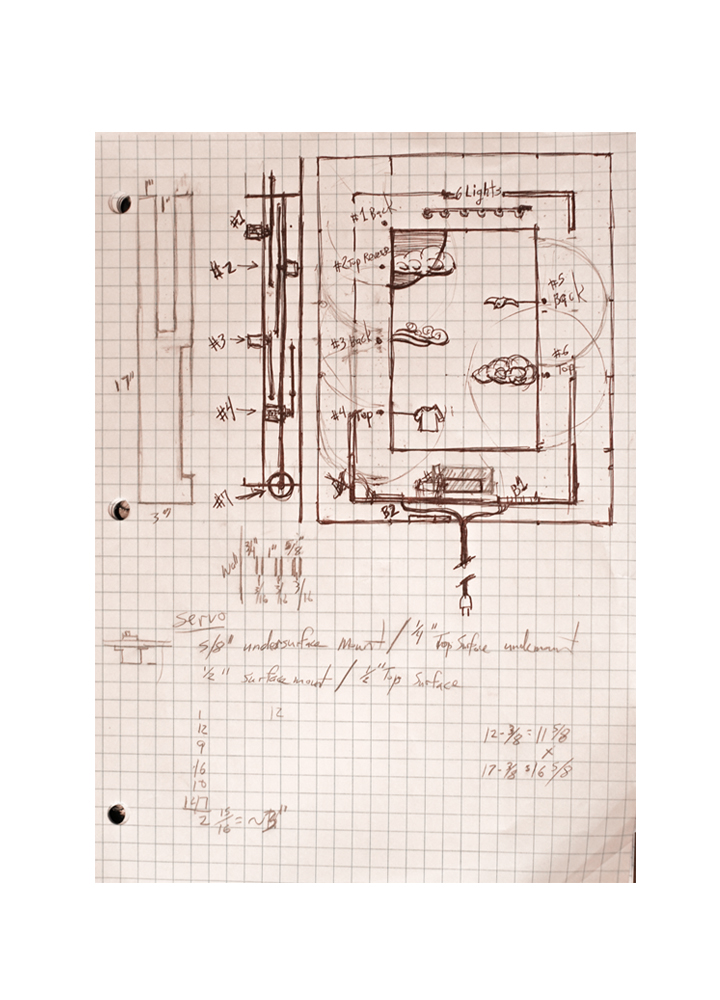 1"
1"
17"
3"
#1
#2
#3
#4
#7
6 Lights
#1 Back
#2 Top Reverse
#3 Back
#4 Top
#5
Back
#6
Top
B2
Wall
3/4" 1" 5/8"
3/16 3/16 3/16
Servo
5/8" undersurface Mount / 1/4" Top Surface undermount
1/2" surface mount / 1/2" Top Surface
1
12
9
16
10
2 15/16 = ~3"
12
12-3/8 = 11 5/8
x
17-3/8 = 16 5/8